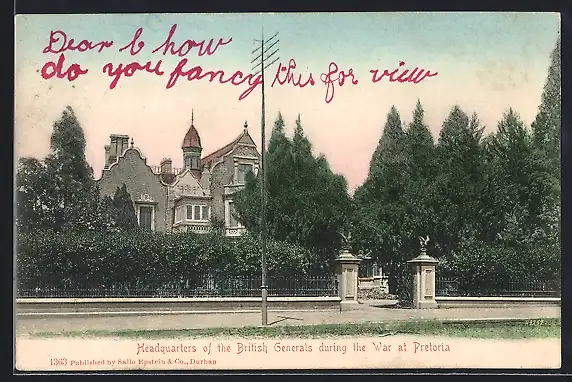 Dear b how
do you fancy this for view
Headquarters of the British Generals during the War at Pretoria
1363 Published by Sallo Epstein & Co., Durban